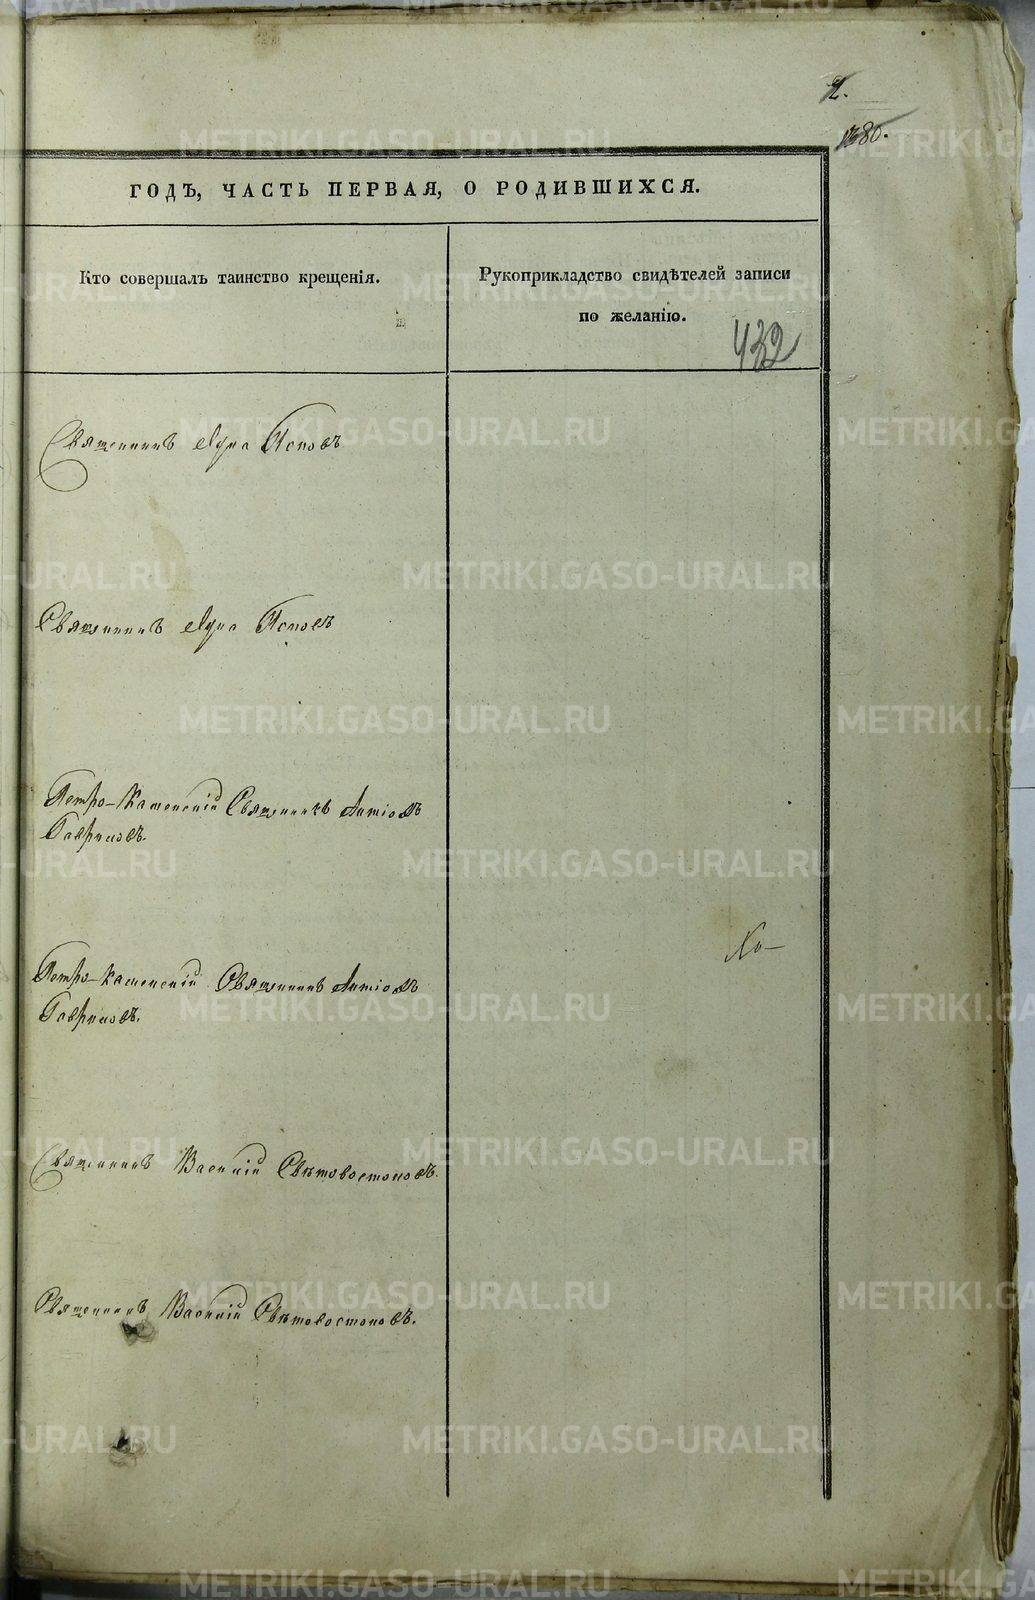 2.
1380.
ГОДЪ, ЧАСТЬ ПЕРВАЯ, О РОДИВШИХСЯ.
Кто совершалъ таинство крещенія.
Рукоприкладство свидѣтелей записи
по желанію.
432
Священникъ Лука Ясновъ
Священникъ Лука Ясновъ
Петро-Каменскій Священникъ Антіохъ
Гавриловъ.
Петро-Каменскій Священникъ Антіохъ
Гавриловъ.
Священникъ Василій Свѣтовостоковъ.
Священникъ Василій Свѣтовостоковъ.
METRIKI.GASO-URAL.RU